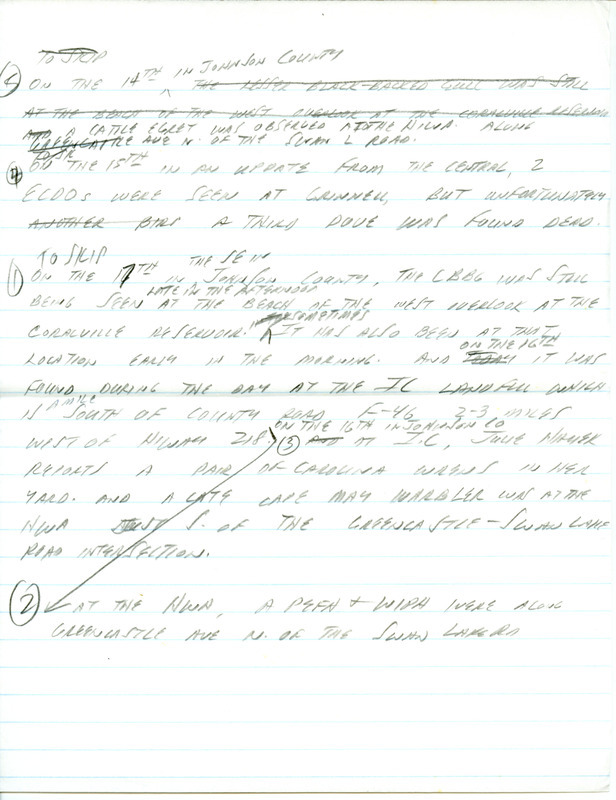 TO SKIP
⑤ ON THE 14TH IN JOHNSON COUNTY THE LESSER BLACK-BACKED GULL WAS STILL
AT THE BEACH OF THE WEST OVERLOOK AT THE CORALVILLE RESERVOIR
AND A CATTLE EGRET WAS OBSERVED AT THE NWA. ALONG
GREENCASTLE AVE N. OF THE SWAN L ROAD.
TO SK
④ ON THE 15TH IN AN UPDATE FROM THE CENTRAL, 2
ECDOS WERE SEEN AT GRINNELL, BUT UNFORTUNATELY
ANOTHER BIRD A THIRD DOVE WAS FOUND DEAD.
TO SKIP THE SE IA
① ON THE 17TH IN JOHNSON COUNTY, THE LBBG WAS STILL
LATE IN THE AFTERNOON
BEING SEEN AT THE BEACH OF THE WEST OVERLOOK AT THE
SOMETIMES
CORALVILLE RESERVOIR. IT HAS ALSO BEEN AT THAT
ON THE 16TH
LOCATION EARLY IN THE MORNING. AND TODAY IT WAS
FOUND DURING THE DAY AT THE IC LANDFILL WHICH
IS A MILE SOUTH OF COUNTY ROAD F-46 2-3 MILES
ON THE 16TH IN JOHNSON CO
WEST OF HIWAY 218. ③ AND AT I.C, JULIE
REPORTS A PAIR OF CAROLINA WRENS IN HER
YARD. AND A LATE CAPE MAY WARBLER WAS AT THE
NWA JUST S. OF THE GREENCASTLE-SWAN LAKE
ROAD INTERSECTION.
② AT THE NWA, A PEFA + WIPH WERE ALONG
GREENCASTLE AVE N. OF THE SWAN LAKE RD